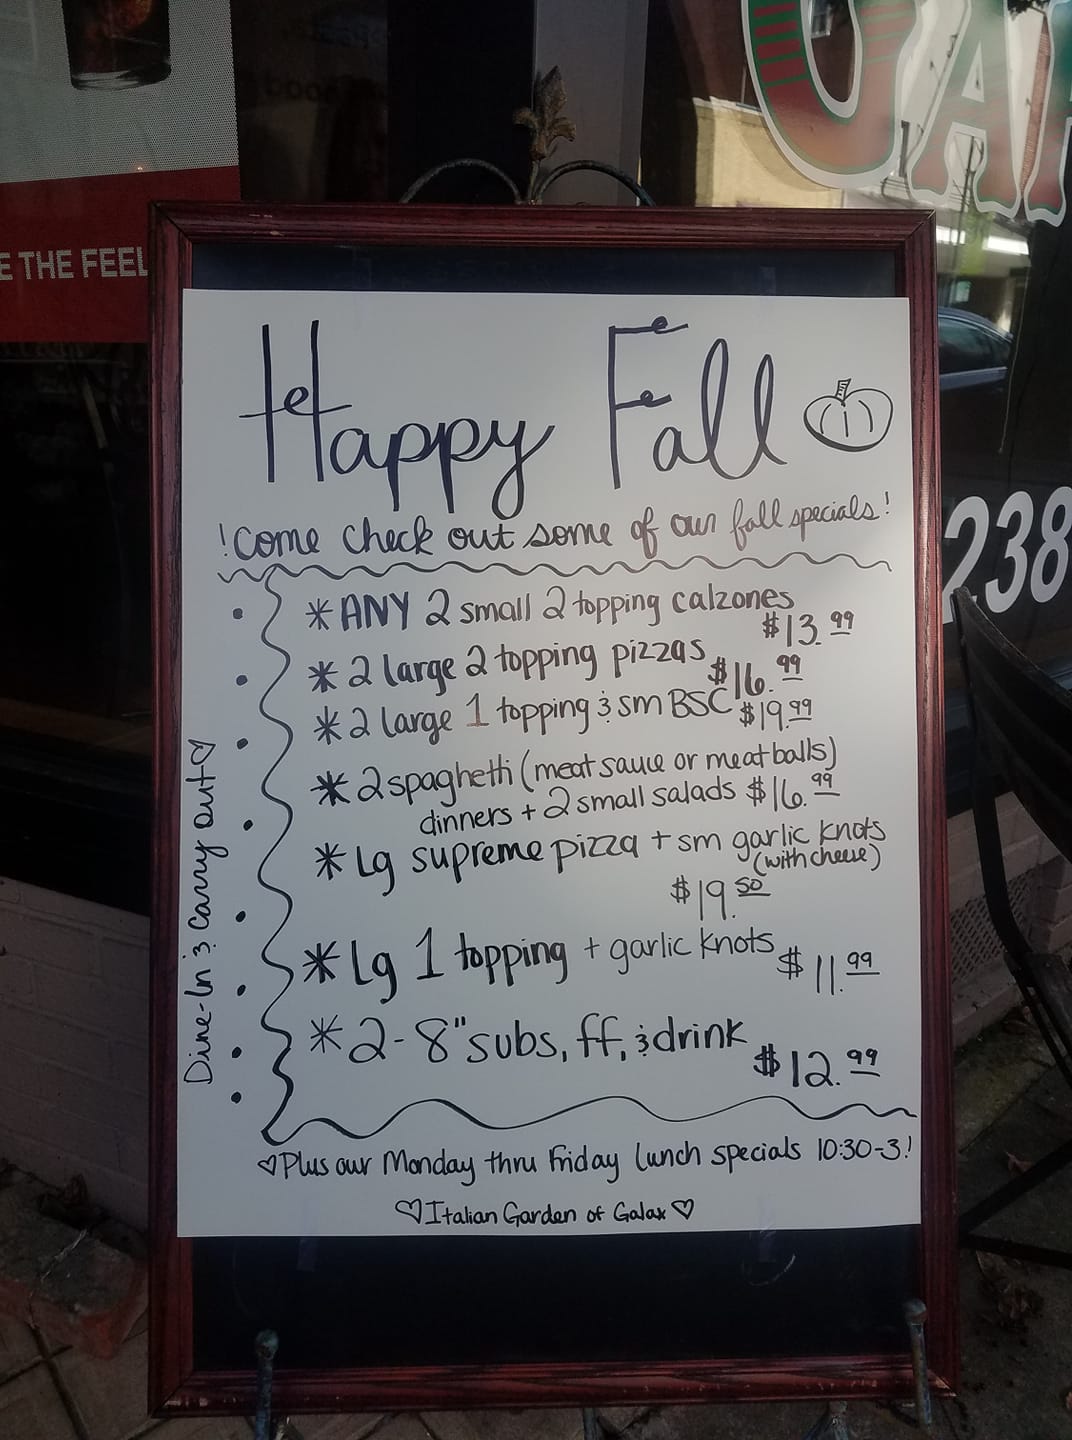 E THE FEEL
CAF
238
Happy Fall
!Come check out some of our fall specials!
*ANY 2 small 2 topping calzones
$13.99
*2 large 2 topping pizzas
$16.99
*2 large 1 topping & sm BSC $19.99
*2 spaghetti (meat sauce or meatballs)
dinners + 2 small salads $16.99
*Lg supreme pizza + sm garlic knots
(with cheese)
$19.50
*Lg 1 topping + garlic knots $11.99
*2-8" subs, ff, & drink
$12.99
Dine-In & Carry out♡
♡Plus our Monday thru Friday lunch specials 10:30-3!
♡Italian Garden of Galax♡